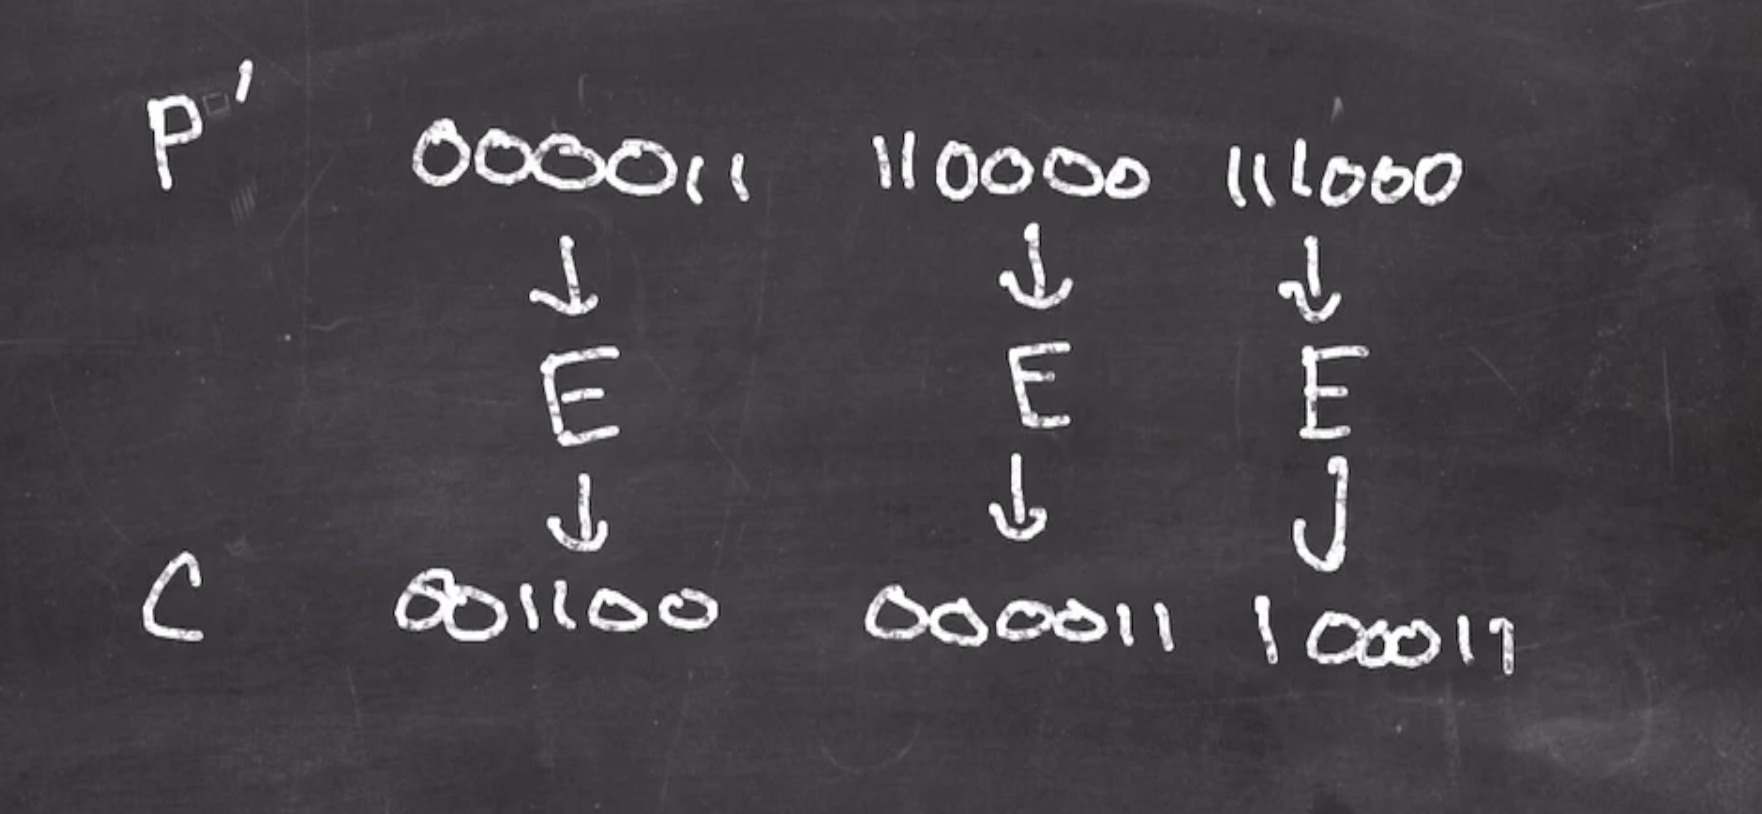 P' 000011 110000 111000
↓ ↓ ↓
E E E
↓ ↓ ↓
C 001100 000011 100011